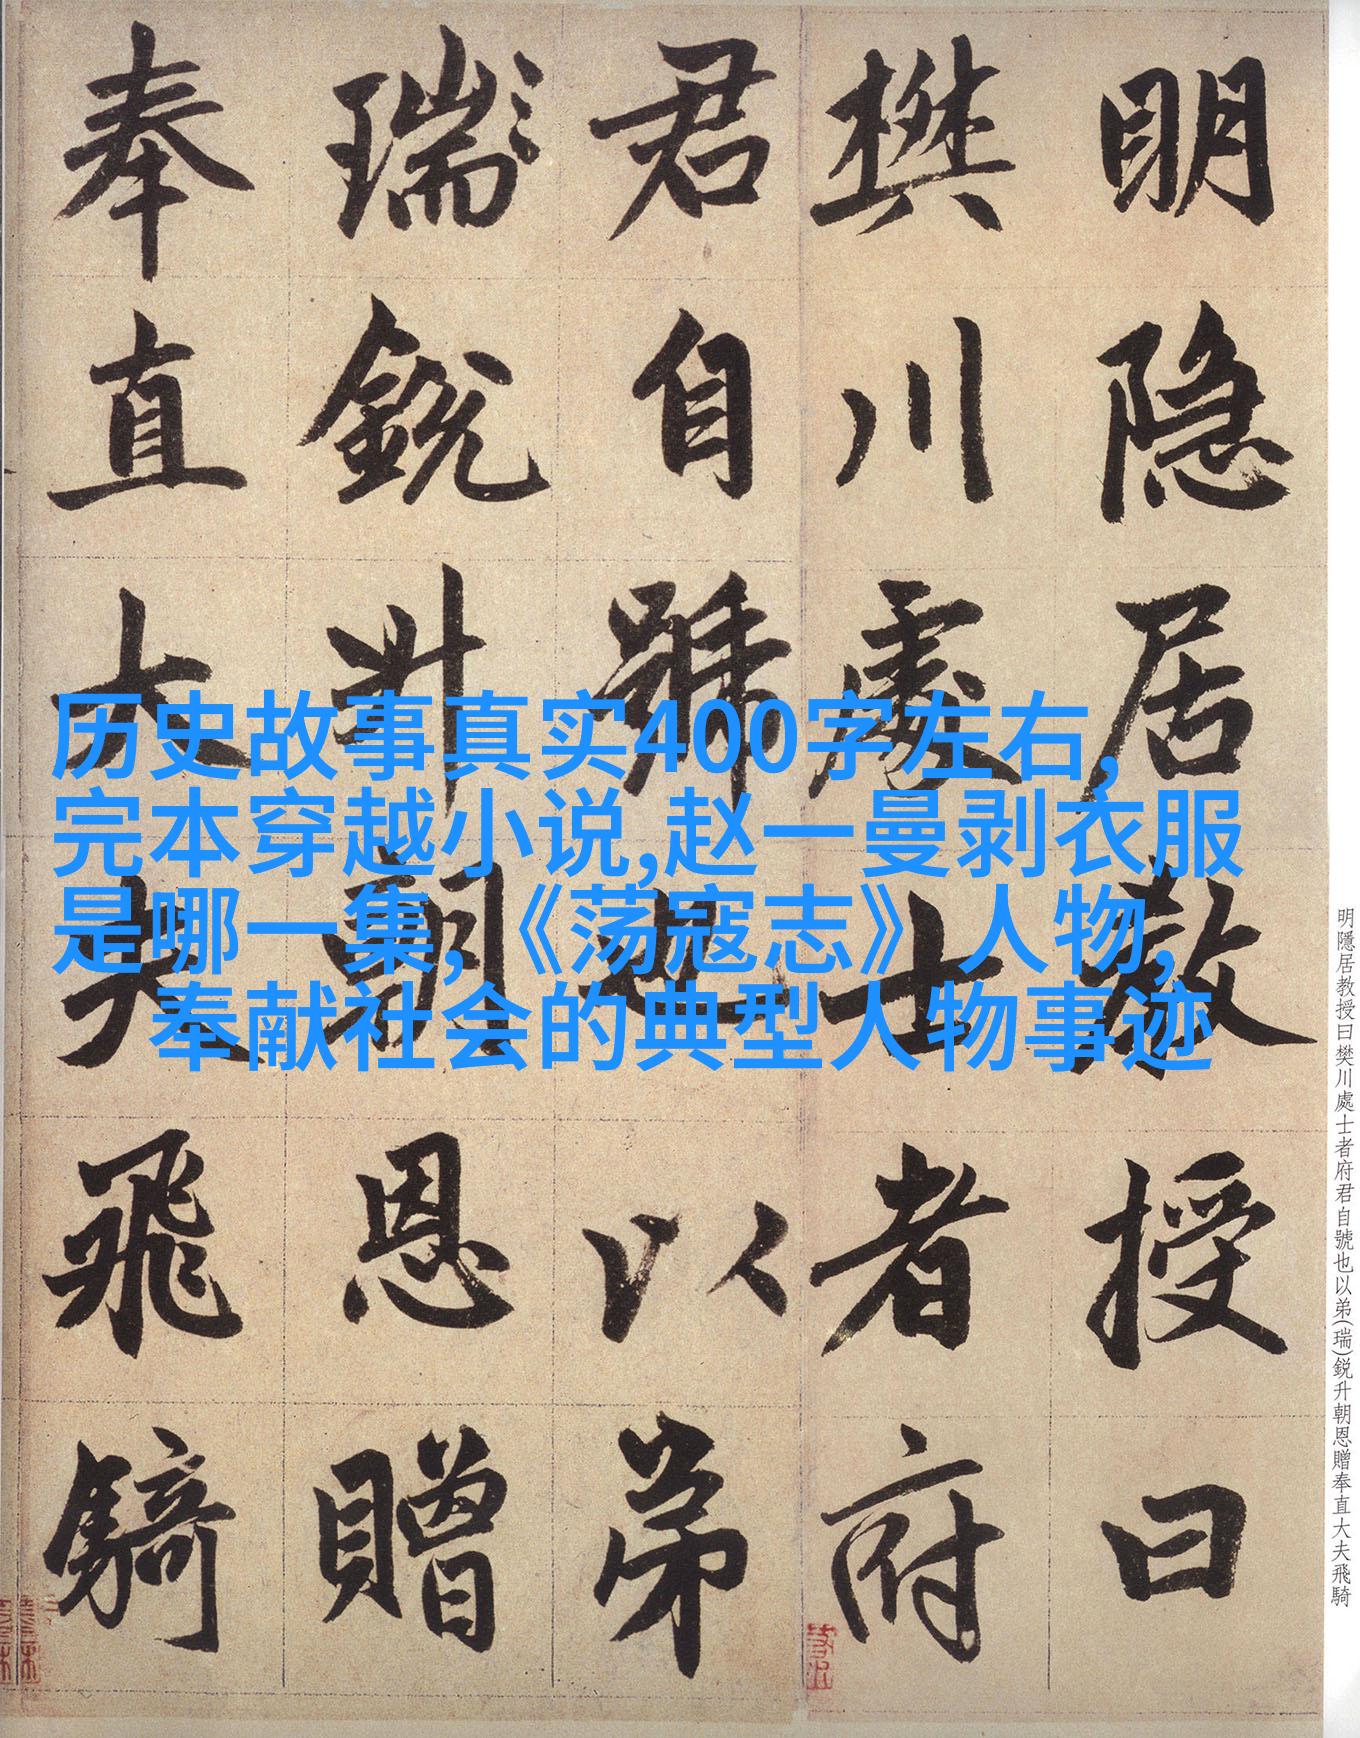 明隱居教授曰
樊川處士者府
君自號也以弟
瑞銳升朝恩贈
奉直大夫飛騎
历史故事真实400字左右,
完本穿越小说,赵一曼剥衣服
是哪一集,《荡寇志》人物,
奉献社会的典型人物事迹
明隱居教授曰樊川處士者府君自號也以弟(瑞)鋭升朝恩贈奉直大夫飛騎